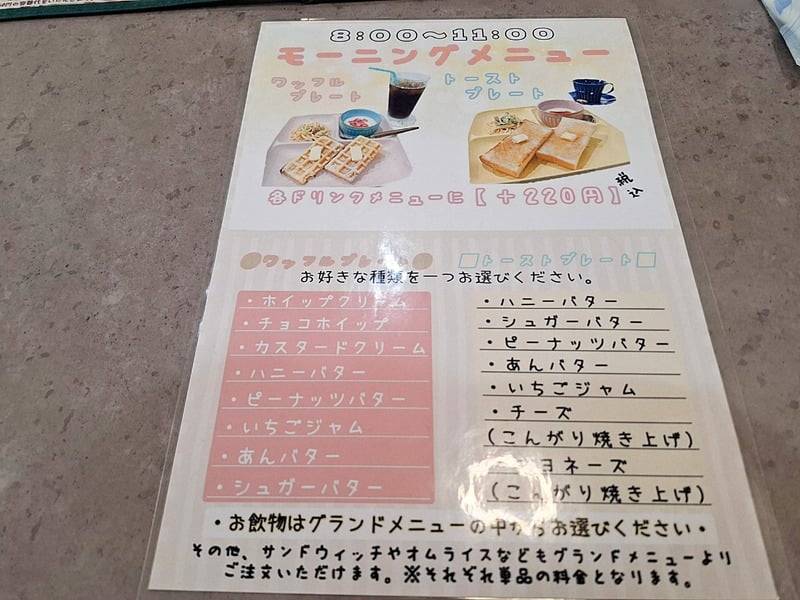 8:00〜11:00
モーニングメニュー
ワッフル
プレート
トースト
プレート
各ドリンクメニューに【+220円】
税込
●ワッフルプレート●
□トーストプレート□
お好きな種類を一つお選びください。
・ホイップクリーム
・チョコホイップ
・カスタードクリーム
・ハニーバター
・ピーナッツバター
・いちごジャム
・あんバター
・シュガーバター
・ハニーバター
・シュガーバター
・ピーナッツバター
・あんバター
・いちごジャム
・チーズ
(こんがり焼き上げ)
・マヨネーズ
(こんがり焼き上げ)
・お飲物はグランドメニューの中からお選びください・
その他、サンドウィッチやオムライスなどもグランドメニューより
ご注文いただけます。※それぞれ単品の料金となります。